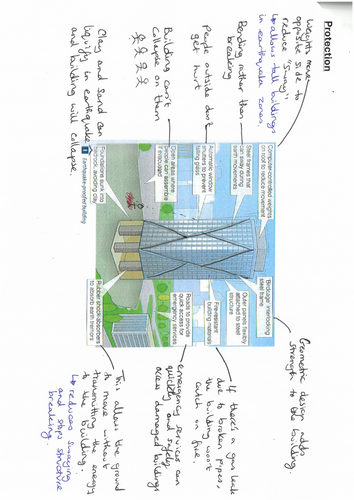 Protection
Weights move
opposite side to
reduce "sway"
↳ allows tall buildings
in earthquake zones.
Bending rather than
breaking
People outside don't
get hurt
Building can't
collapse on them
Clay and sand can
liquify in earthquake
and building will collapse.
Computer-controlled weights
on roof to reduce movement
Steel frames that
can sway during
earth movements
Automatic window
shutters to prevent
falling glass
Open areas where
people can assemble
if evacuated
Foundations sunk into
bedrock, avoiding clay
Earthquake-proofed building
Birdcage interlocking
steel frame
Outer panels flexibly
attached to steel
structure
Fire-resistant
building materials
Roads to provide
quick access for
emergency services
Rubber shock-absorbers
to absorb earth tremors
Geometric design adds
strength to the building.
If there's a gas leak
due to broken pipes,
the building won't
catch on fire.
emergency services can
quickly and safely
access damaged buildings
This allows the ground
to move without
transmitting the energy
to the building.
↳ reduces swaying
and stops structure
breaking.